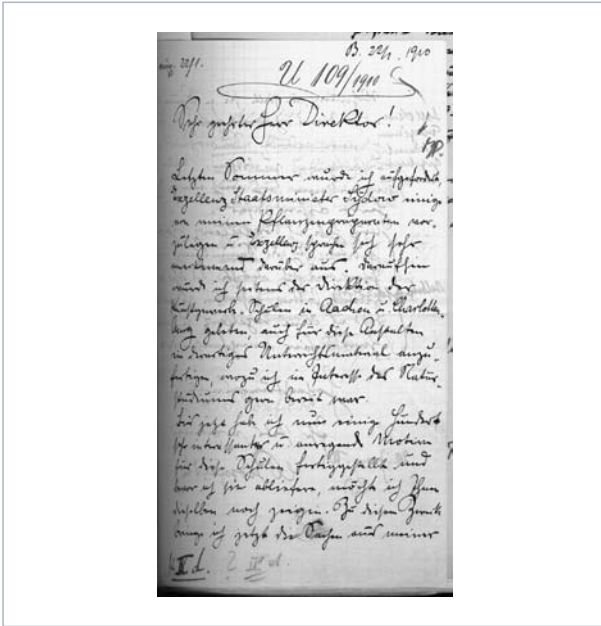 B. 22/1. 1910
eing. 22/1.
U 109/1910
Sehr geehrter Herr Direktor!
Letzten Sommer wurde ich aufgefordert,
Exzellenz Staatsminister Sydow einige
von meinen Pflanzenpräparaten vor-
zulegen u. Exzellenz sprach sich sehr
anerkennend darüber aus. Daraufhin
wurde ich seitens der Direktion der
Kunstgewerbe-Schulen in Aachen u. Charlotten-
burg gebeten, auch für diese Anstalten
ein derartiges Unterrichtsmaterial anzu-
fertigen, wozu ich im Interesse des Natur-
studiums gern bereit war.
Bis jetzt habe ich nun einige Hundert
sehr interessanter u. anregende Motive
für diese Schulen fertiggestellt und
bevor ich sie abliefere, möchte ich Ihnen
dieselben noch zeigen. Zu diesem Zweck
bringe ich jetzt die Sachen aus meiner
II d. ?